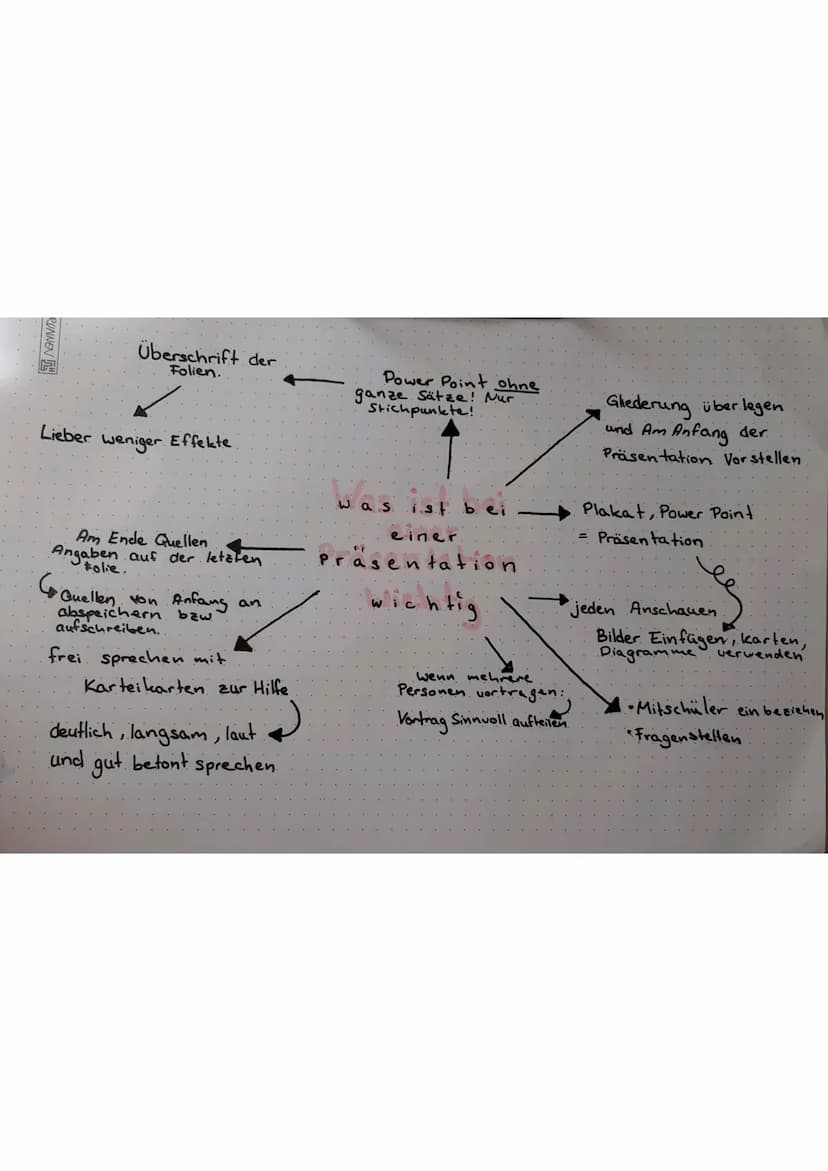 Überschrift der
Folien.
Lieber weniger Effekte
Power Point ohne
ganze Sätze! Nur
Stichpunkte!
Gliederung überlegen
und Am Anfang der
Präsentation Vorstellen
Was ist bei
einer
Präsentation
wichtig
Plakat, Power Point
= Präsentation
Am Ende Quellen
Angaben auf der letzten
Folie.
Quellen von Anfang an
abspeichern bzw
aufschreiben.
jeden Anschauen
Bilder Einfügen, Karten,
Diagramme verwenden
frei sprechen mit
Karteikarten zur Hilfe
deutlich, langsam, laut
und gut betont sprechen
wenn mehrere
Personen vortragen:
Vortrag Sinnvoll aufteilen
• Mitschüler einbeziehen
• Fragenstellen